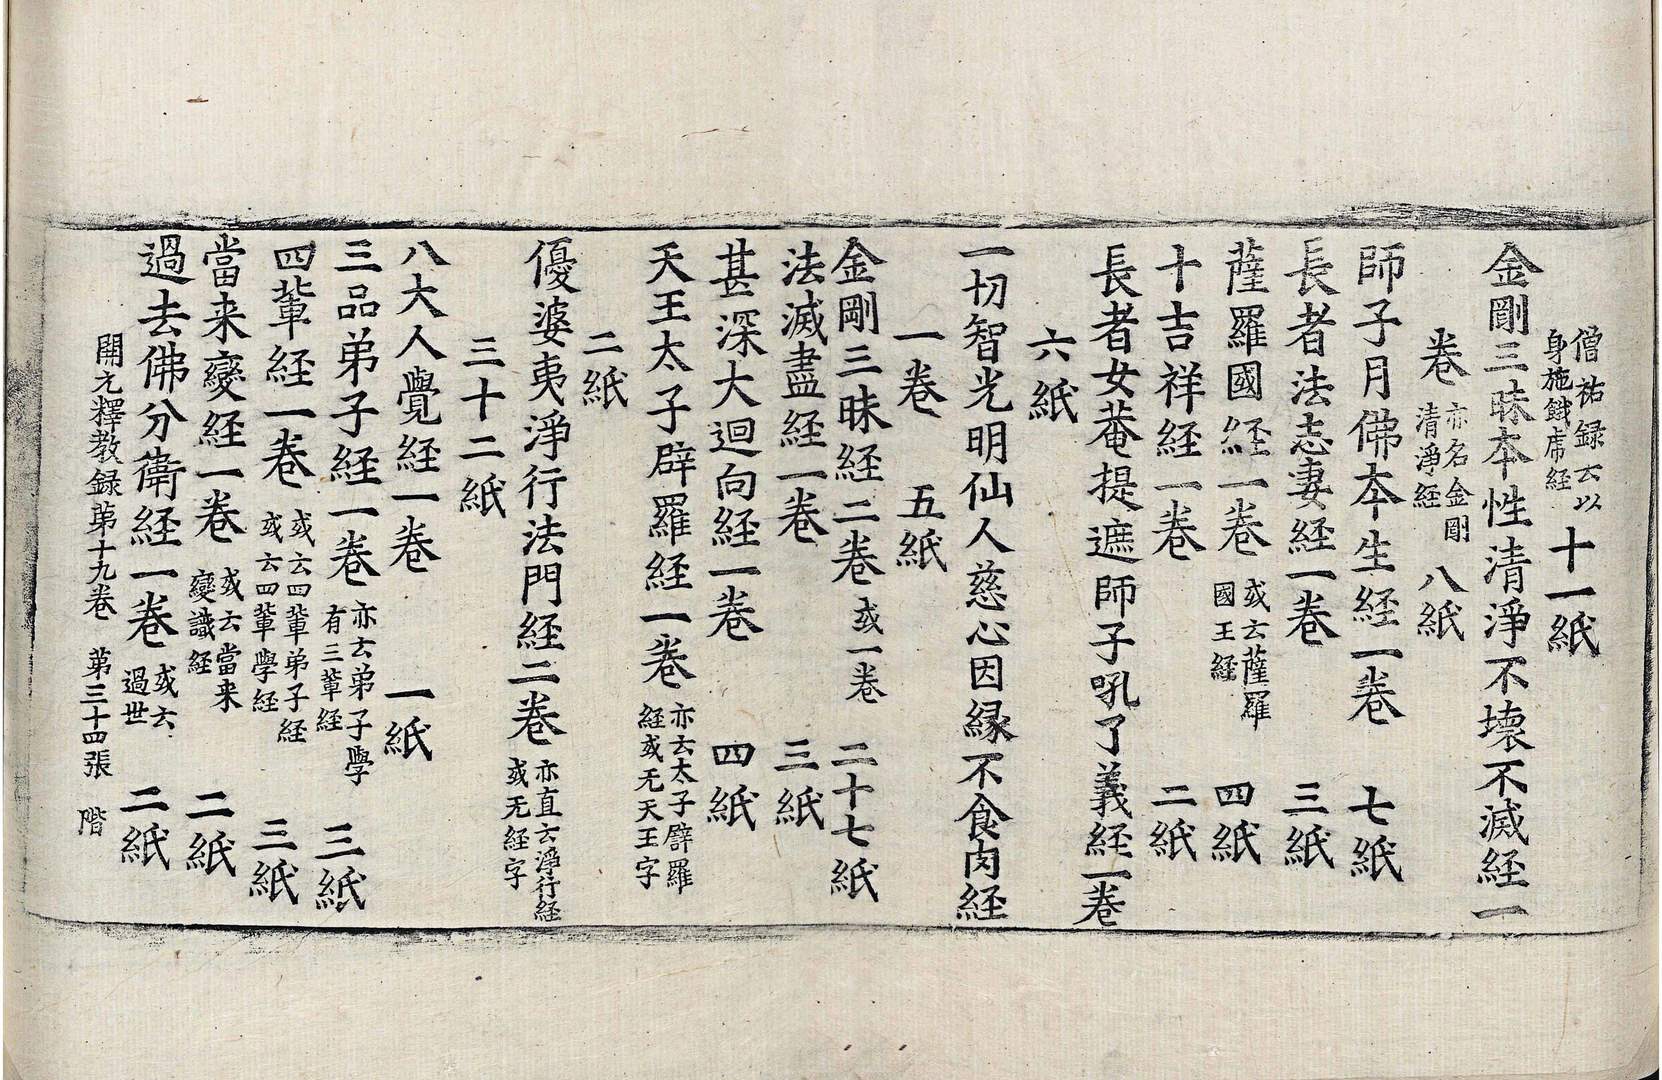 僧祐録云以身施餓虎経 十一紙
金剛三昧本性清淨不壊不滅経一
卷 亦名金剛清淨経 八紙
師子月佛本生経一卷 七紙
長者法志妻経一卷 三紙
薩羅國経一卷 或云薩羅國王経 四紙
十吉祥経一卷 二紙
長者女菴提遮師子吼了義経一卷
六紙
一切智光明仙人慈心因縁不食肉経
一卷 五紙
金剛三昧経二卷 或一卷 二十七紙
法滅盡経一卷 三紙
甚深大迴向経一卷 四紙
天王太子辟羅経一卷 亦云太子譬羅経或无天王字
二紙
優婆夷淨行法門経二卷 亦直云淨行経或无経字
三十二紙
八大人覺経一卷 一紙
三品弟子経一卷 亦云弟子學有三輩経 三紙
四輩経一卷 或云四輩弟子経或云四輩學経 三紙
當来變経一卷 或云當来變識経 二紙
過去佛分衛経一卷 或云過世 二紙
開元釋教録第十九卷 第三十四張 階